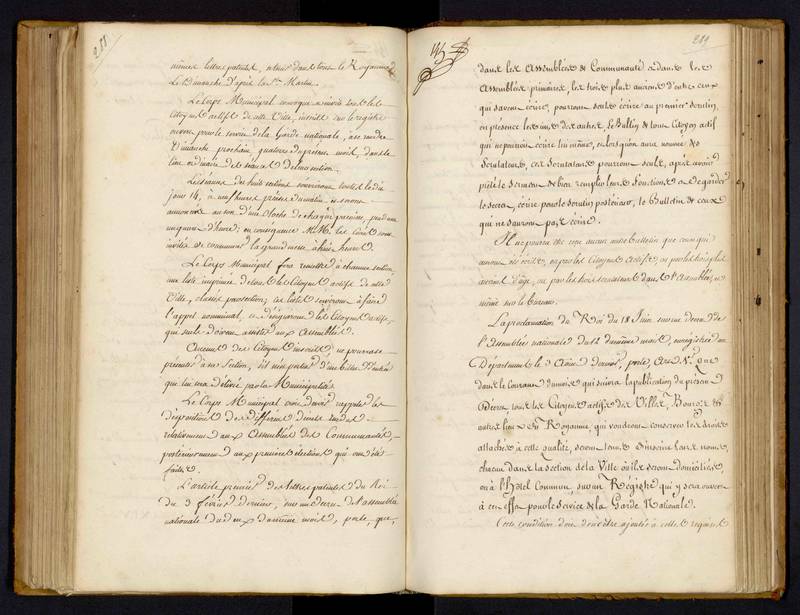 288
mêmes lettres patentes, seront dans tous le Royaume
Le Dimanche d'après la St Martin.
Le Corps Municipal convoque et invite tous les
Citoyens actifs de cette Ville, inscrits sur le registre
ouvert pour le service de la Garde nationale, à se rendre
Dimanche prochain, quatorze du présent mois, dans le
lieu ordinaire des séances de leur section.
Les séances des huit sections s'ouvriront toutes le dit
jour 14, à neuf heures précises du matin et seront
annoncées au son d'une cloche de chaque paroisse, pendant
un quart d'heure; en conséquence MM. les Curés sont
invités de commencer la grand messe à huit heures.
Le Corps Municipal fera remettre à chaque section
une liste imprimée de tous les Citoyens actifs de cette
Ville, classés par section; ces listes serviront à faire
l'appel nominal, et désigneront les Citoyens actifs,
qui seuls doivent assister aux Assemblées.
Aucun des Citoyens inscrits ne pourra se
présenter à sa Section, s'il n'est porteur d'une billet d'entrée
qui lui sera délivré par la Municipalité.
Le Corps Municipal croit devoir rappeler les
dispositions des différents décrets rendus
relativement aux Assemblées des Communautés,
postérieurement aux premières élections qui ont été
faites.
L'article premier des lettres patentes du Roi
du 3 février dernier, sur un décret de l'assemblée
nationale du deux du même mois, porte, que,
289
dans les Assemblées de Communauté et dans les
Assemblées primaires, les trois plus anciens d'entre ceux
qui savent écrire, pourront seuls écrire au premier scrutin,
en présence les uns des autres, le Bulletin de tous Citoyen actif
qui ne pourrait écrire lui même, et lorsqu'on aura nommé des
Scrutateurs, ces Scrutateurs pourront seuls, après avoir
prêté le serment de bien remplir leurs fonctions et de garder
le secret, écrire pour les scrutins postérieurs, les bulletins de ceux
qui ne sauront pas écrire.
Il ne pourra être reçu aucun autre bulletin que ceux qui
auront été écrits, ou par les Citoyens actifs, ou par les trois plus
avancés d'âge, ou par les trois scrutateurs dans l'assemblée, et
même sur le bureau.
La proclamation du Roi du 18 Juin sur un décret de
l'assemblée nationale du 12 du même mois, enregistrée au
Département le 3 Août dernier, porte, Art. 1er. Que
dans le courant du mois qui suivra la publication du présent
Décret, tous les Citoyens actifs des Villes, Bourgs et
autres lieux du Royaume, qui voudront conserver les droits
attachés à cette qualité, seront tenus d'inscrire leurs noms,
chacun dans la section de la Ville où ils seront domiciliés,
ou à l'hôtel Commun, sur un Registre qui y sera ouvert
à cet effet pour le service de la Garde Nationale.
Cette condition doit donc être ajoutée à celles requises